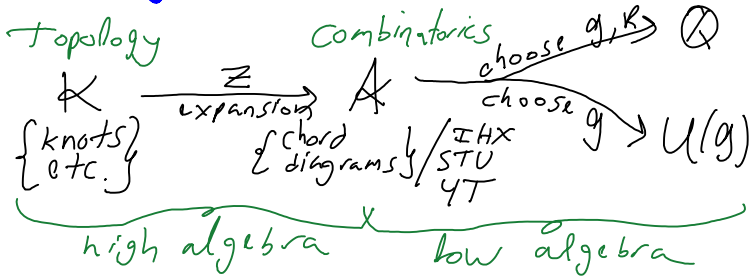 Topology Combinatorics
choose g, R ℚ
K Z A
expansion choose g U(g)
{knots etc.} {chord diagrams} / IHX STU 4T
high algebra low algebra